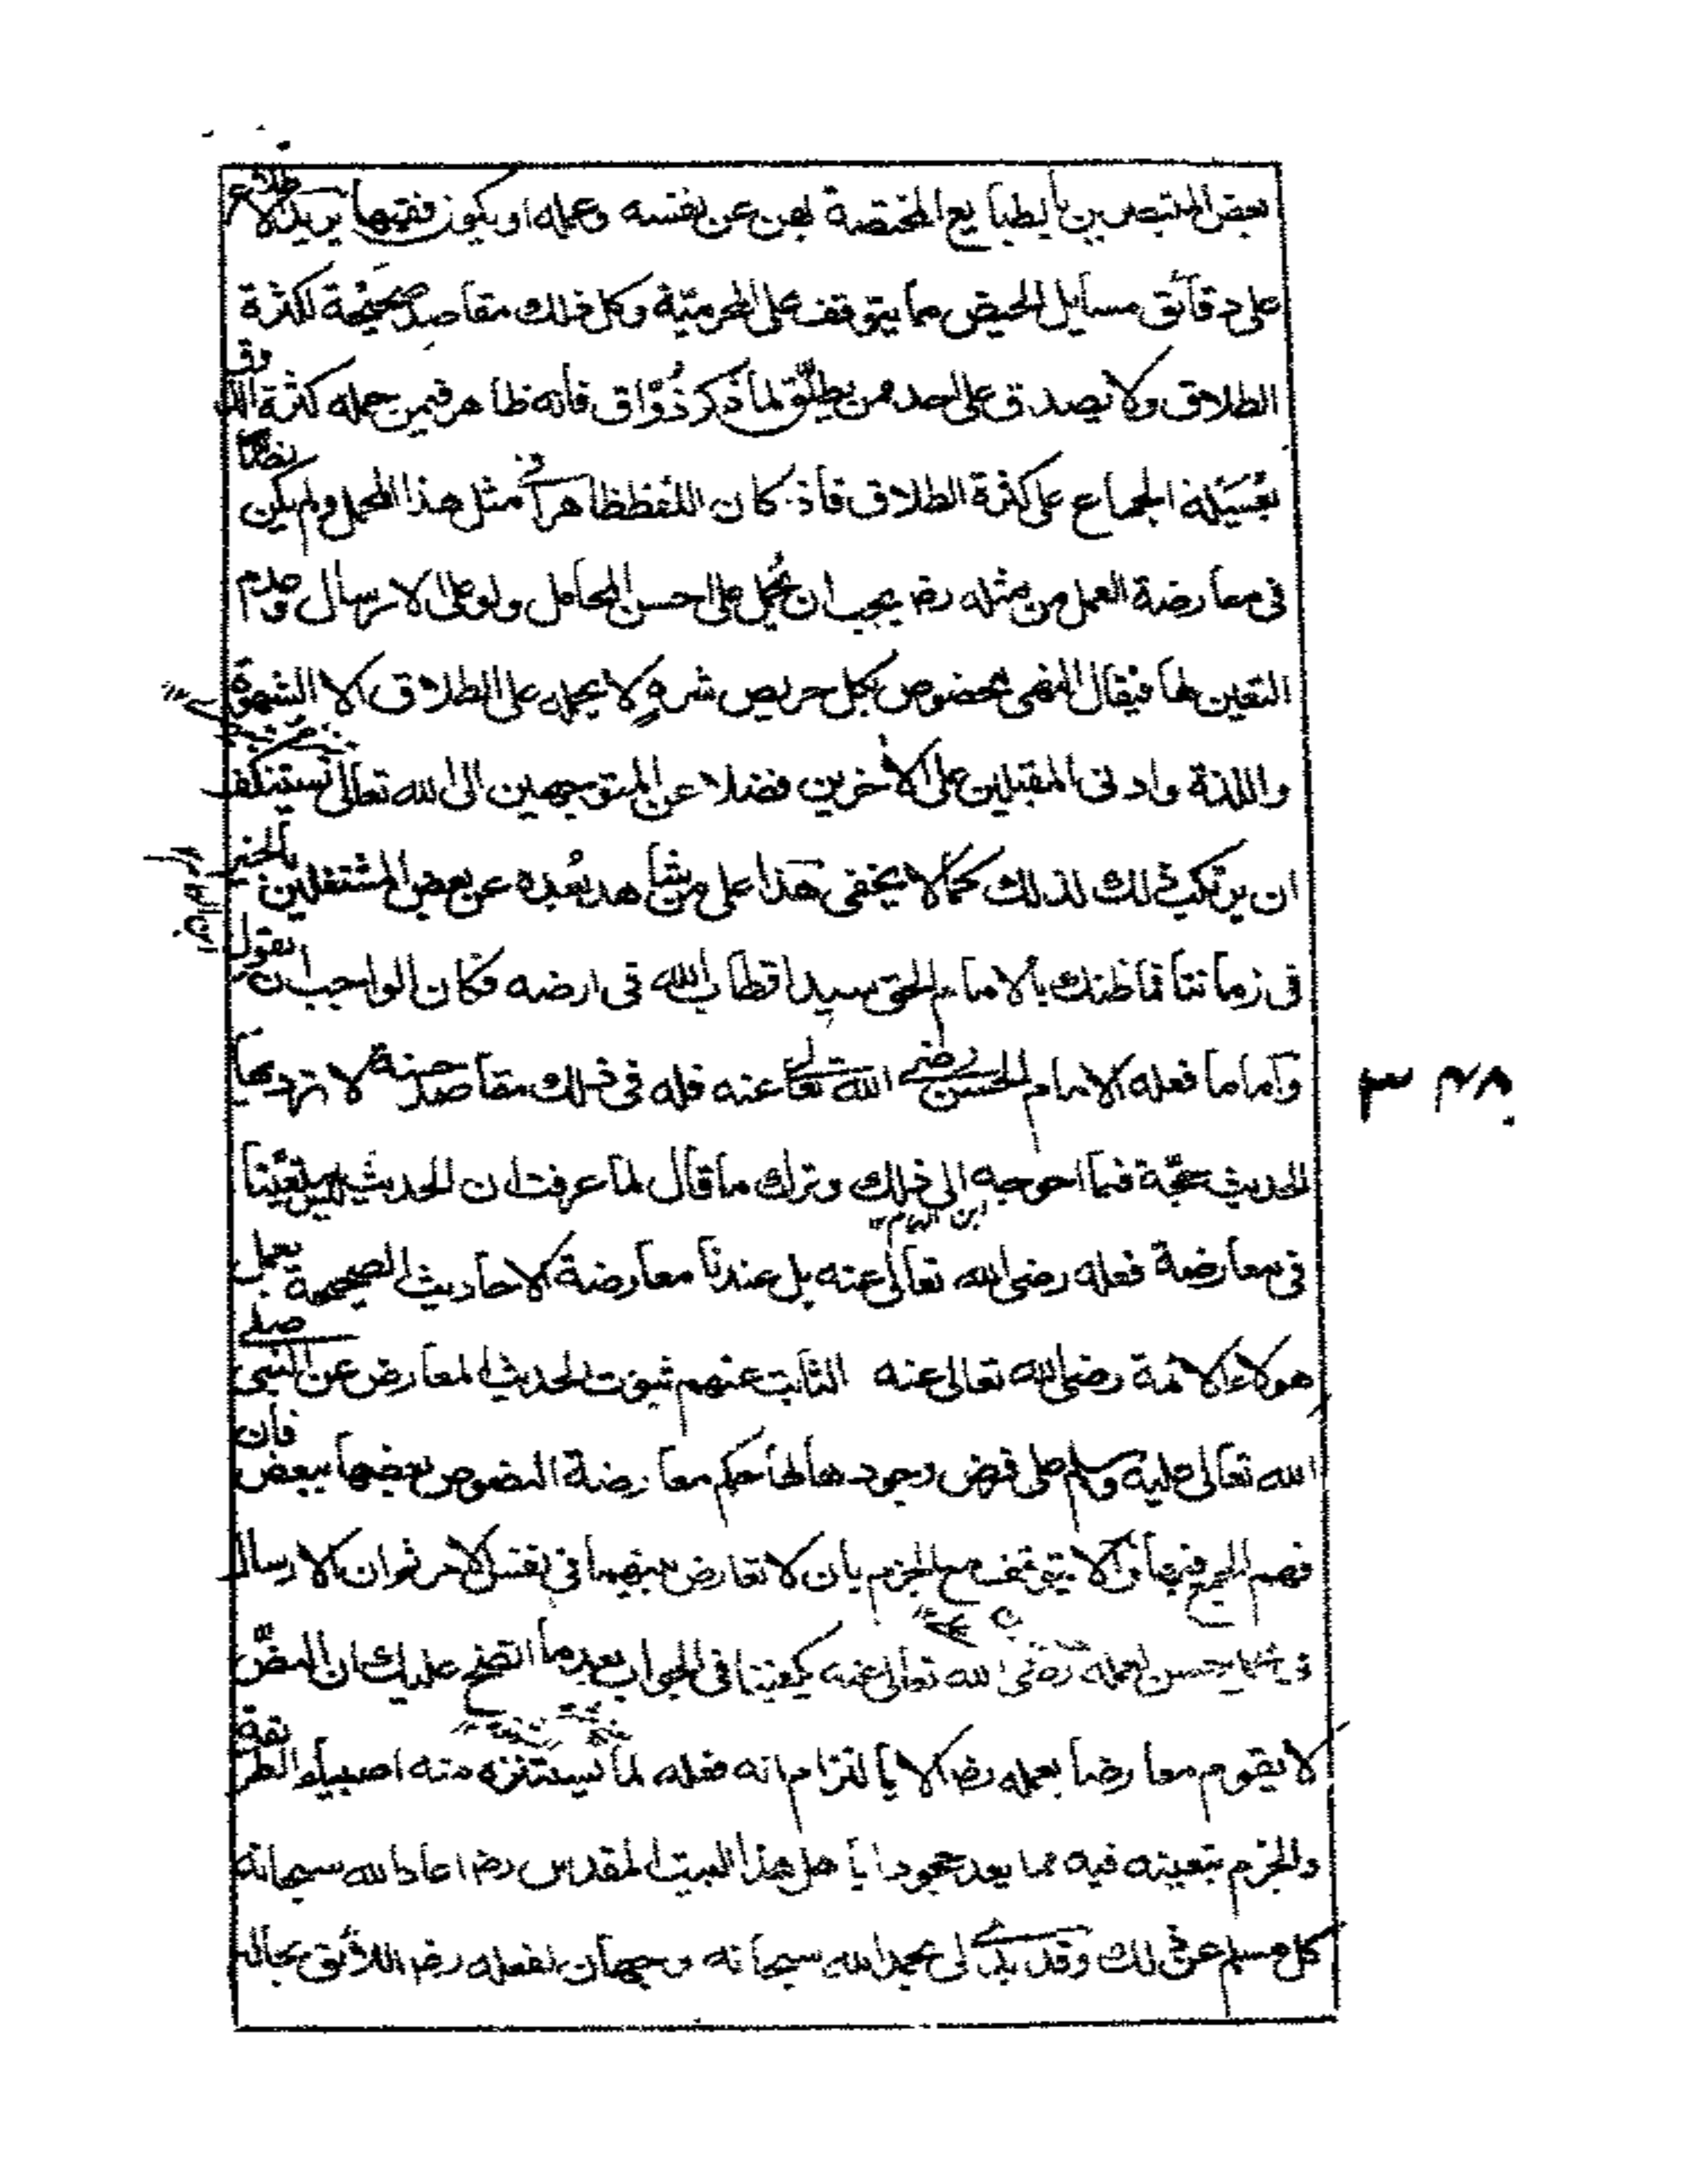 بعض المتبصرين بالطبايع المختصة بهن عن نفسه وعمله او يكون فقيها يريد الاطلاع
على دقائق مسايل الحيض مما يتوقف على المحرميّة وكل ذلك مقاصد صحيحة لكثرة
الطلاق ولا يصدق على احد ممن يطلّق لما ذكر ذُوّاق فانه ظاهر فيمن حمله كثرة الذوق
بعُسَيلة الجماع على كثرة الطلاق فاذ كان اللفظ ظاهرا فى مثل هذا المحمل ولم يكن نصّاً
فى معارضة العمل من مثله رضـ يجب ان يُحمل على احسن المحامل ولو على الارسال وعدم
التعين لها فيقال النهى مخصوص بكل حريص شرهٍ لا يحمله على الطلاق الا الشهوة
واللذة وادنى المقبلين على الآخرين فضلا عن المتوجهين الى الله تعالى يستنكف
ان يرتكب ذلك لذلك كما لا يخفى هذا على من شاهد بُعده عن بعض المشتغلين بالخير
فى زماننا فما ظنك بالامام الحق سيد اقطاب الله فى ارضه فكان الواجب ان يقول
وآما ما فعله الامام الحسن رضى الله تعالى عنه فله فى ذلك مقاصد حسنة لا تردّ بها
الحديث حجّة فيما احوجه الى ذلك وترك ما قال لما عرفت ان الحديث ليس متعيّنا
فى معارضة فعله رضى الله تعالى عنه بل عندنا معارضة الاحاديث الصحيحة بعمل
هولاء الائمة رضى الله تعالى عنه الثابت عنهم ثبوت الحديث المعارض عن النبى صلى
الله تعالى عليه وسلم على فرض وجودها لها حكم معارضة النصوص بعضها ببعض فان
فهم الجمع فبها والا يتوقف مع الجزم بان لا تعارض بينهما فى نفس الامر ثم ان الارسال
فى محامل حسن لعمله رضى الله تعالى عنه يكفينا فى الجواب بعد ما اتضح عليك ان النصّ
لا يقوم معارضا بعمله رضـ الا بالتزام انه فعله لما يستنزه منه اصبياء الطريقة
والجزم بتعينه فيه مما يعد جحودا باهل هذا البيت المقدس رضـ اعاذ الله سبحانه
كل مسلم عن ذلك وقد بدا لى بحمد الله سبحانه وجهان لفعله رضـ اللائق بحاله
٣٧٨